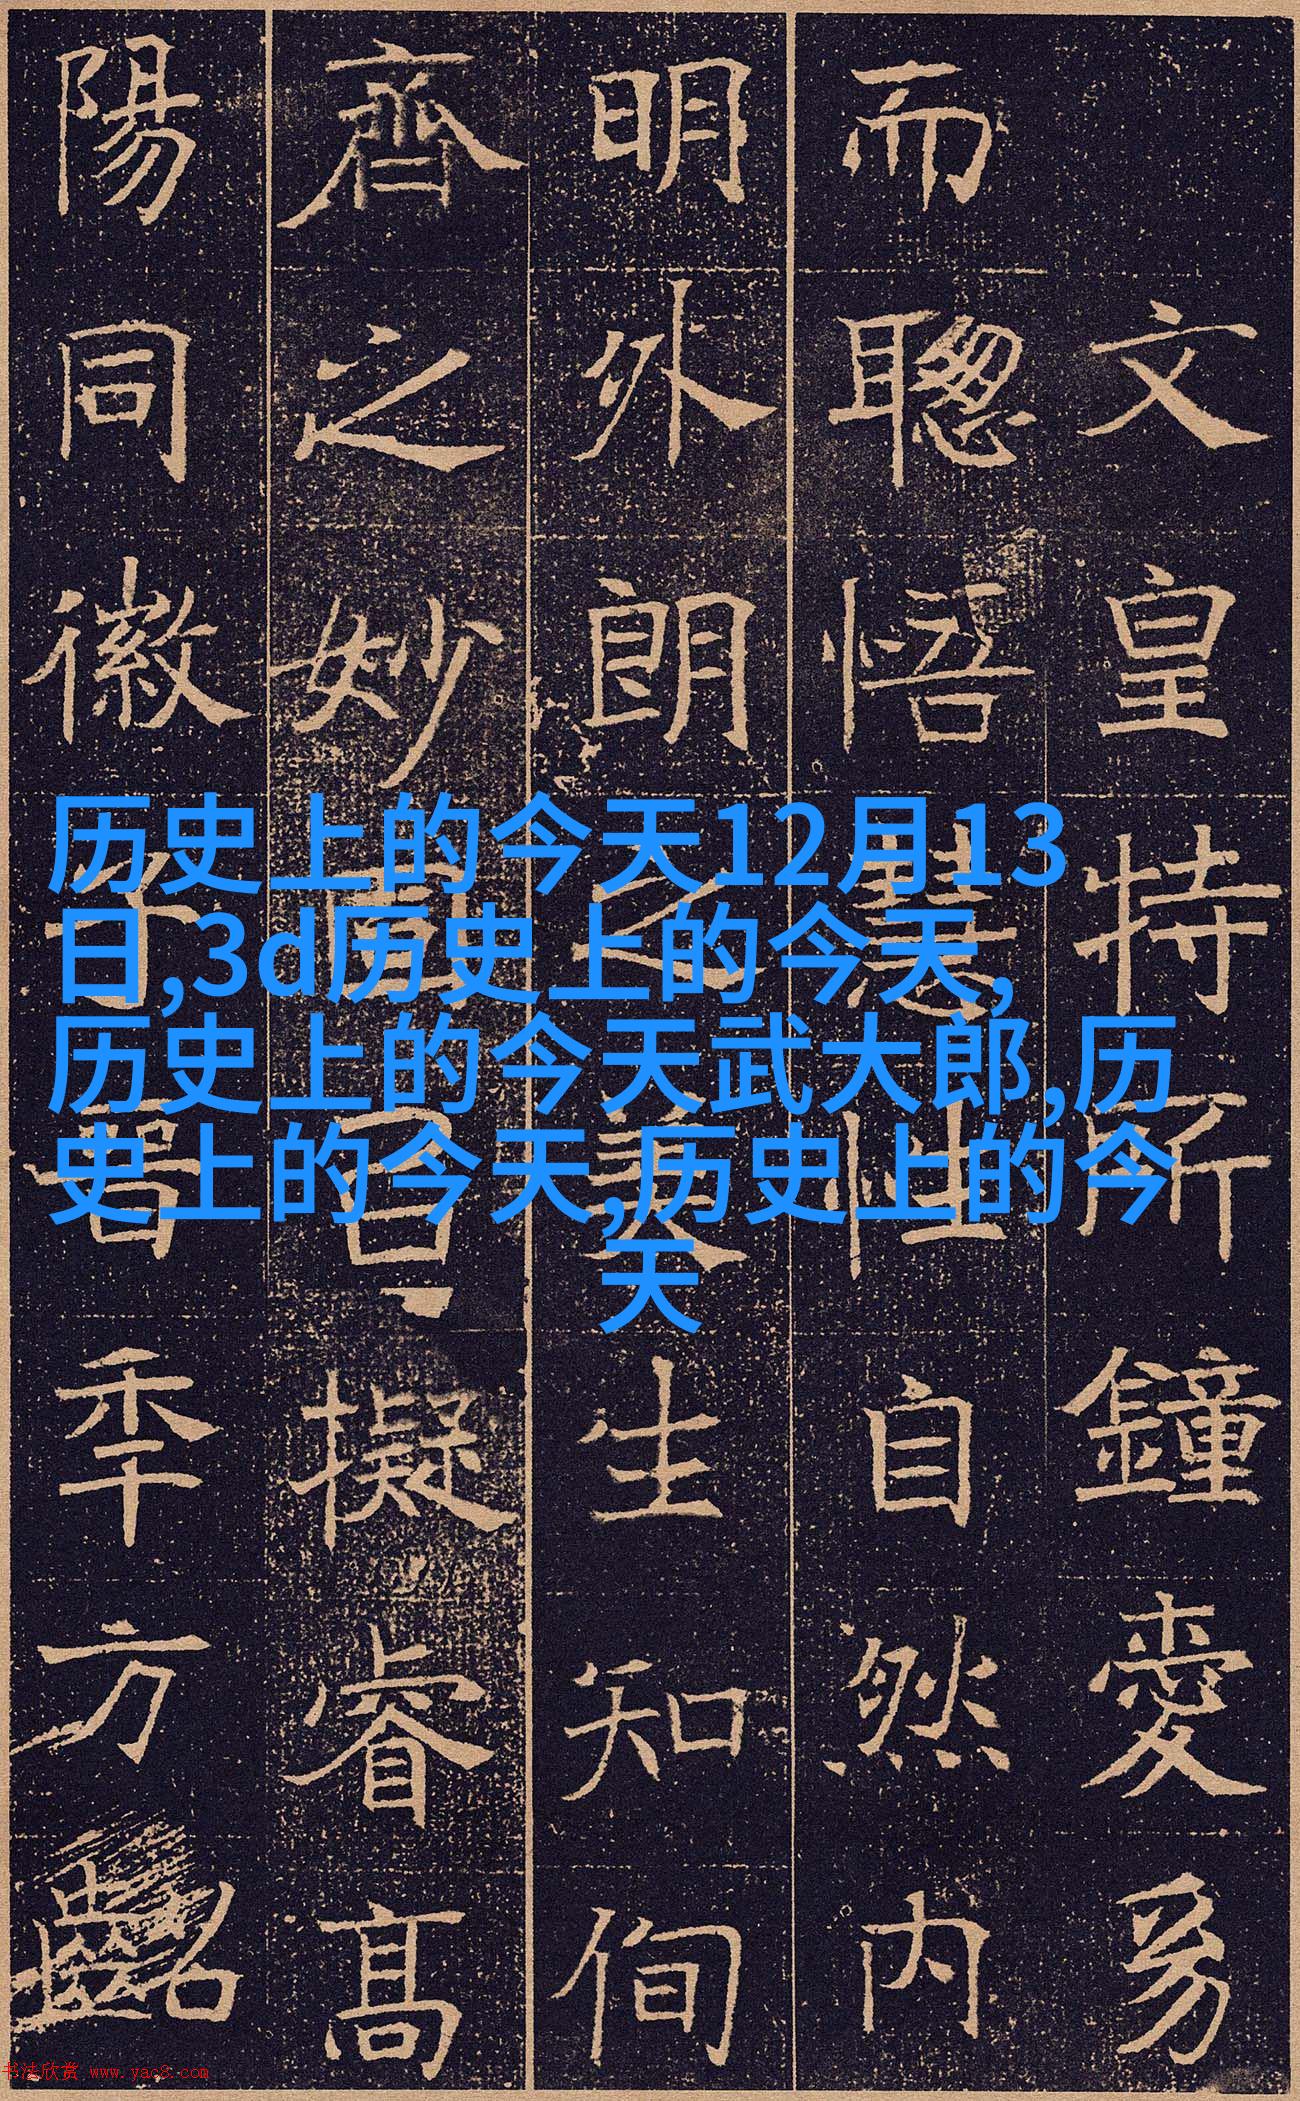 文皇特所鐘愛
而聰悟慧性自然内
明外朗之美生知侚
齊之妙擬睿高
陽同徽子晉季方齠
历史上的今天12月13
日,3d历史上的今天,
历史上的今天武大郎,历
史上的今天,历史上的今
天
书法欣赏 www.yac8.com